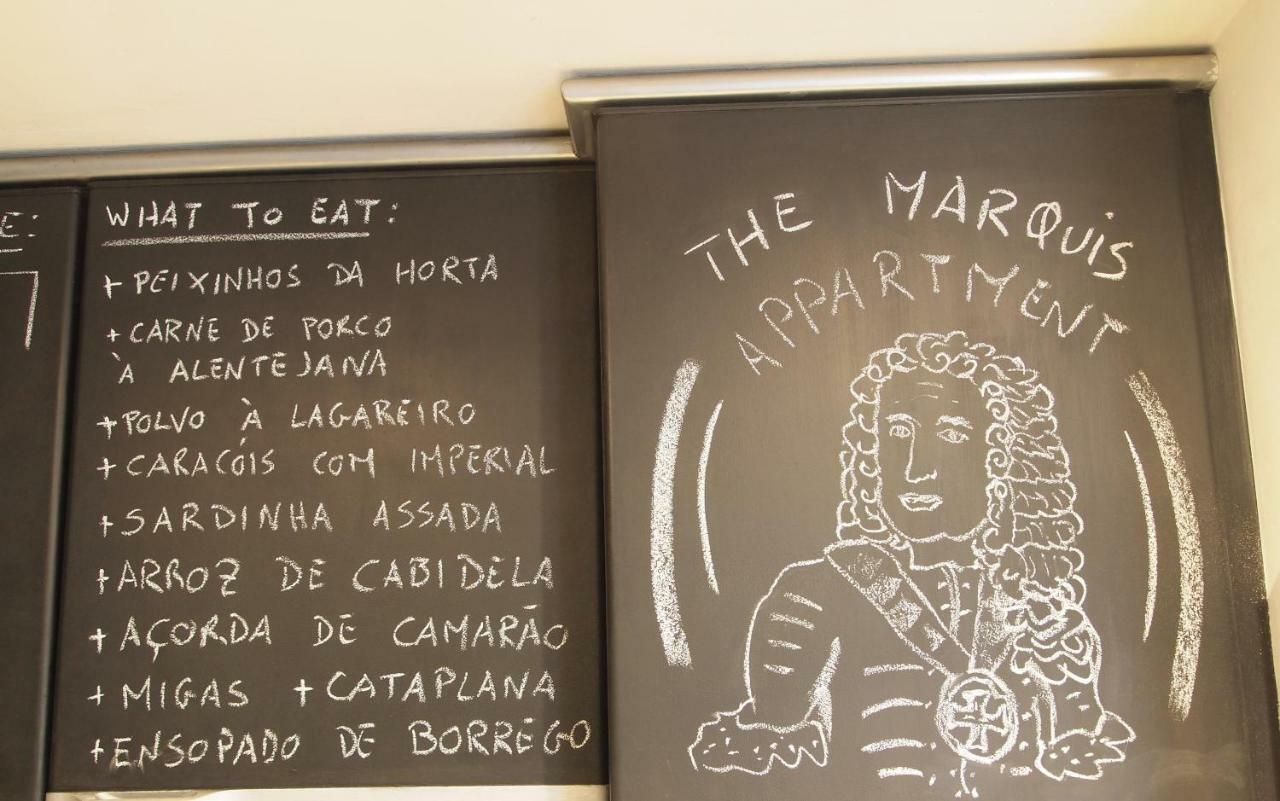 E:
WHAT TO EAT:
+PEIXINHOS DA HORTA
+CARNE DE PORCO
À ALENTEJANA
+POLVO À LAGAREIRO
+CARACÓIS COM IMPERIAL
+SARDINHA ASSADA
+ARROZ DE CABIDELA
+AÇORDA DE CAMARÃO
+MIGAS +CATAPLANA
+ENSOPADO DE BORREGO
THE MARQUiS
APPARTMENT